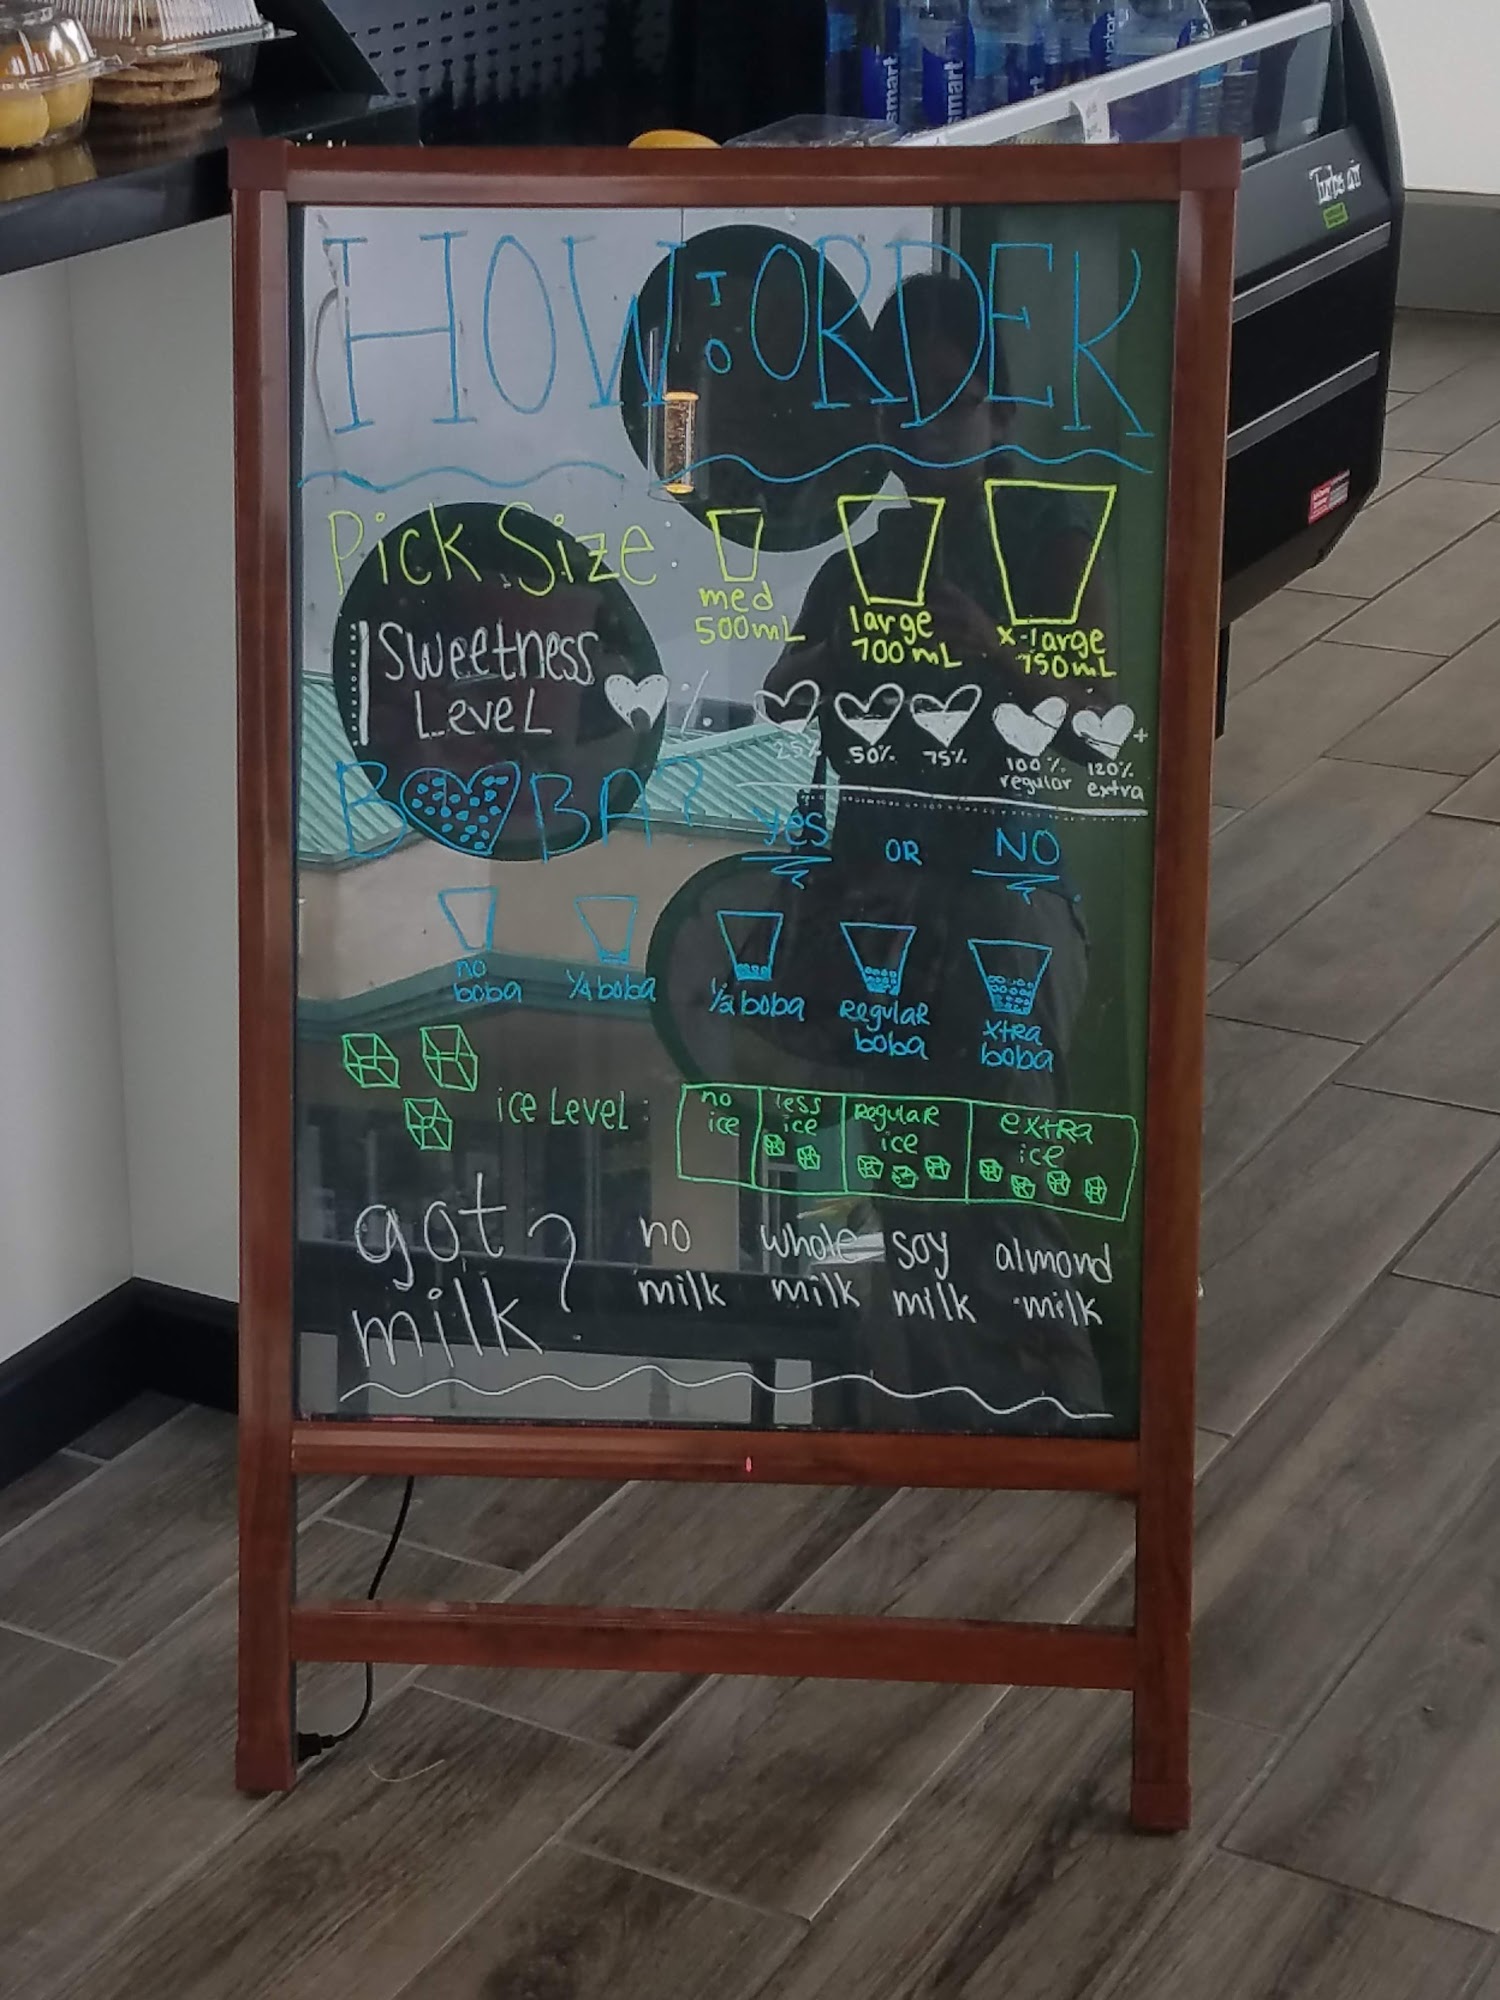 smart
smart
water
Turbo air
HOW TO ORDER
Pick Size:
med
500mL
large
700mL
x-large
750mL
Sweetness
Level
%
25%
50%
75%
100%
regular
120%
extra
+
BOBA?
yes OR NO
no
boba
1/4 boba
1/2 boba
Regular
boba
xtra
boba
ice Level:
no
ice
less
ice
Regular
ice
extra
ice
got
milk?
no
milk
whole
milk
soy
milk
almond
milk